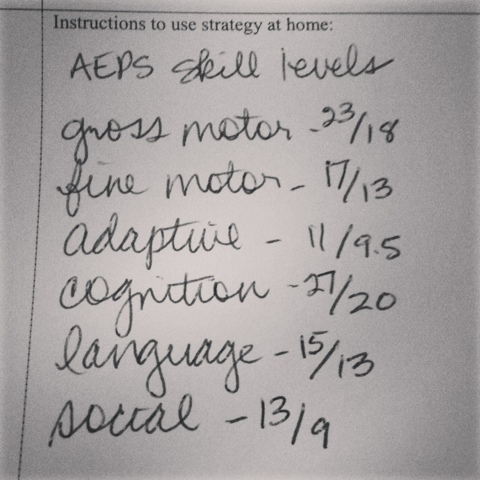 Instructions to use strategy at home:
AEPS skill levels
gross motor - 23/18
fine motor - 17/13
adaptive - 11/9.5
cognition - 27/20
language - 15/13
social - 13/9